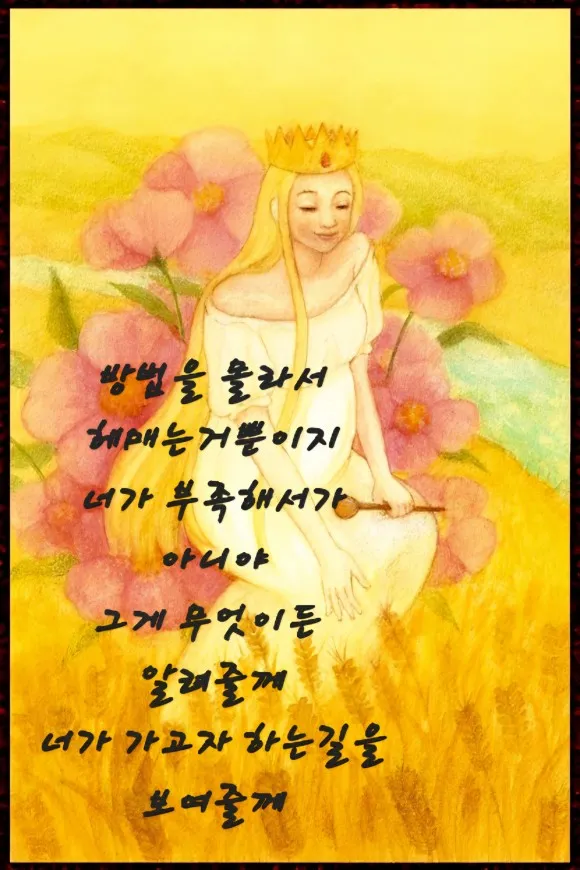 방법을 몰라서
헤매는거뿐이지
너가 부족해서가
아니야
그게 무엇이든
알려줄께
너가 가고자 하는길을
보여줄께